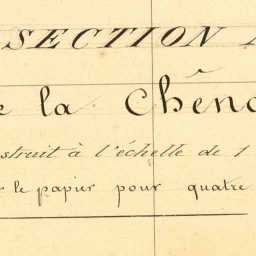 SECTION
la Chên
struit à l'échelle de 1
le papier pour quatre